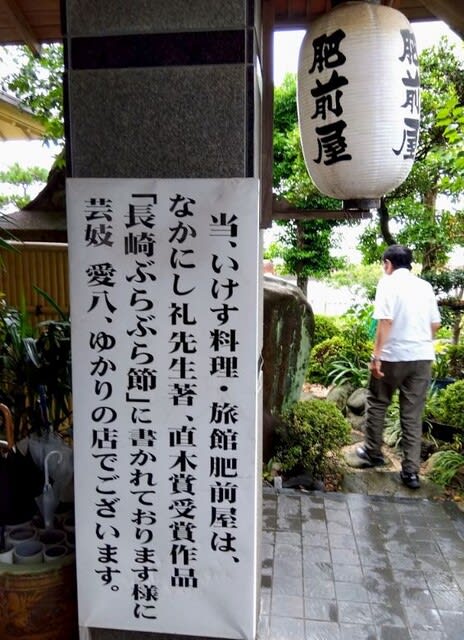 肥前屋
肥前屋
当、いけす料理・旅館肥前屋は、
なかにし礼先生著、直木賞受賞作品
「長崎ぶらぶら節」に書かれております様に
芸妓 愛八、ゆかりの店でございます。